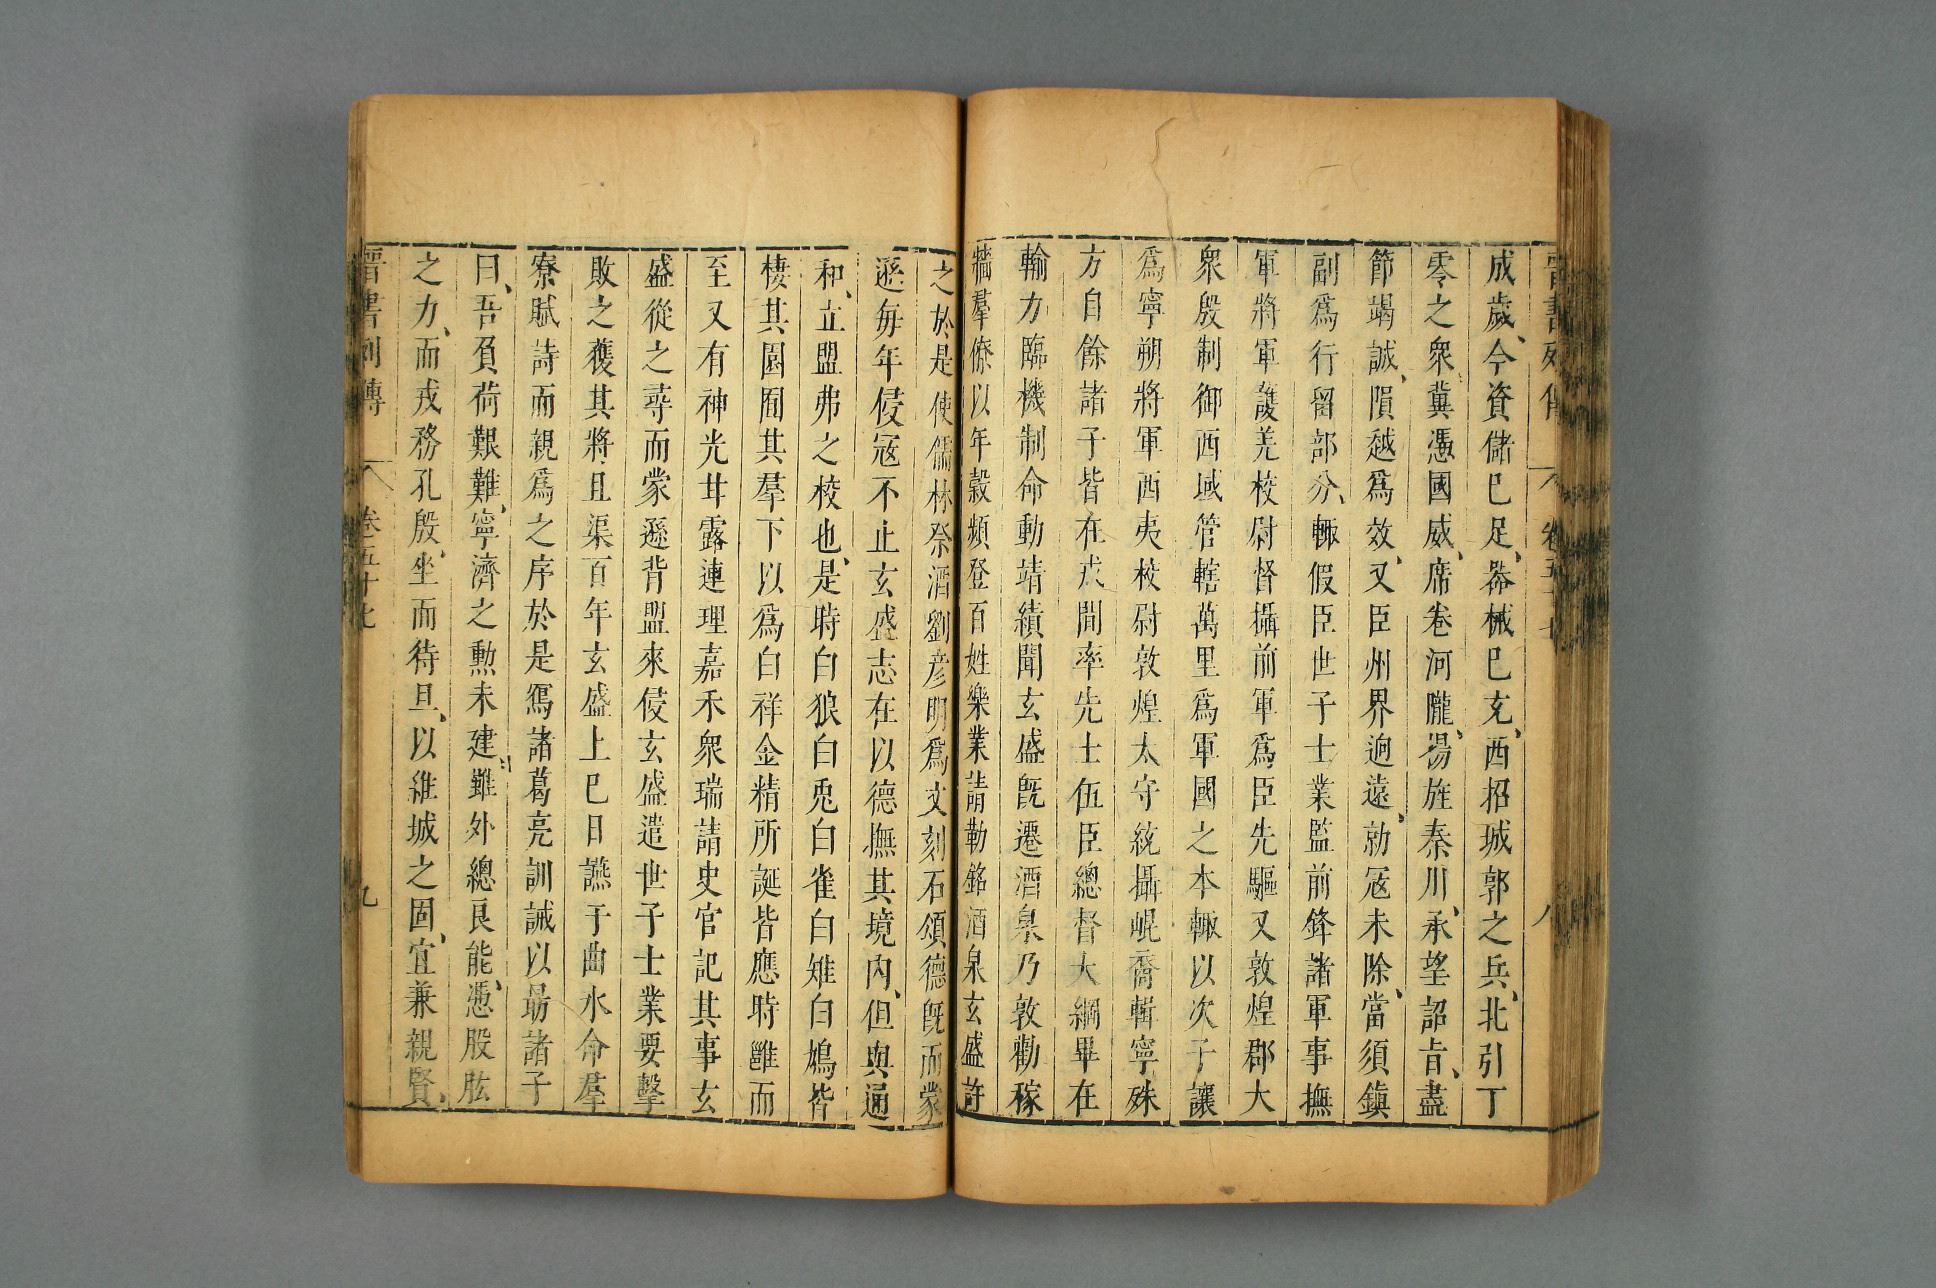 晉書列傳 卷五十七 八
成歲、今資儲已足、器械已充、西招城郭之兵、北引丁
零之衆、冀憑國威、席卷河隴、揚旌秦川、承望詔旨、盡
節竭誠、隕越爲效、又臣州界逈遠、勍寇未除、當須鎮
副爲行留部分、輙假臣世子士業監前鋒諸軍事撫
軍將軍護羌校尉督攝前軍爲臣先驅又敦煌郡大
衆殷制御西域管轄萬里爲軍國之本輙以次子讓
爲寧朔將軍西夷校尉敦煌太守統攝崐裔輯寧殊
方自餘諸子皆在戎間率先士伍臣總督大綱畢在
輸力臨機制命動靖績聞玄盛旣遷酒泉乃敦勸稼
穡羣僚以年穀頻登百姓樂業請勒銘酒泉玄盛許
之於是使儒林祭酒劉彦明爲文刻石頌德旣而蒙
遜每年侵寇不止玄盛志在以德撫其境內、但與通
和、立盟弗之校也、是時白狼白兎白雀白雉白鳩皆
棲其園囿其羣下以爲白祥金精所誕皆應時邕而
至又有神光甘露連理嘉禾衆瑞請史官記其事玄
盛從之尋而蒙遜背盟來侵玄盛遣世子士業要擊
敗之獲其將且渠百年玄盛上巳日讌于曲水命羣
寮賦詩而親爲之序於是寫諸葛亮訓誡以勗諸子
曰、吾負荷艱難、寧濟之勲未建、雖外總良能、憑股肱
之力、而戎務孔殷、坐而待旦、以維城之固、宜兼親賢、
晉書列傳 卷五十七 九